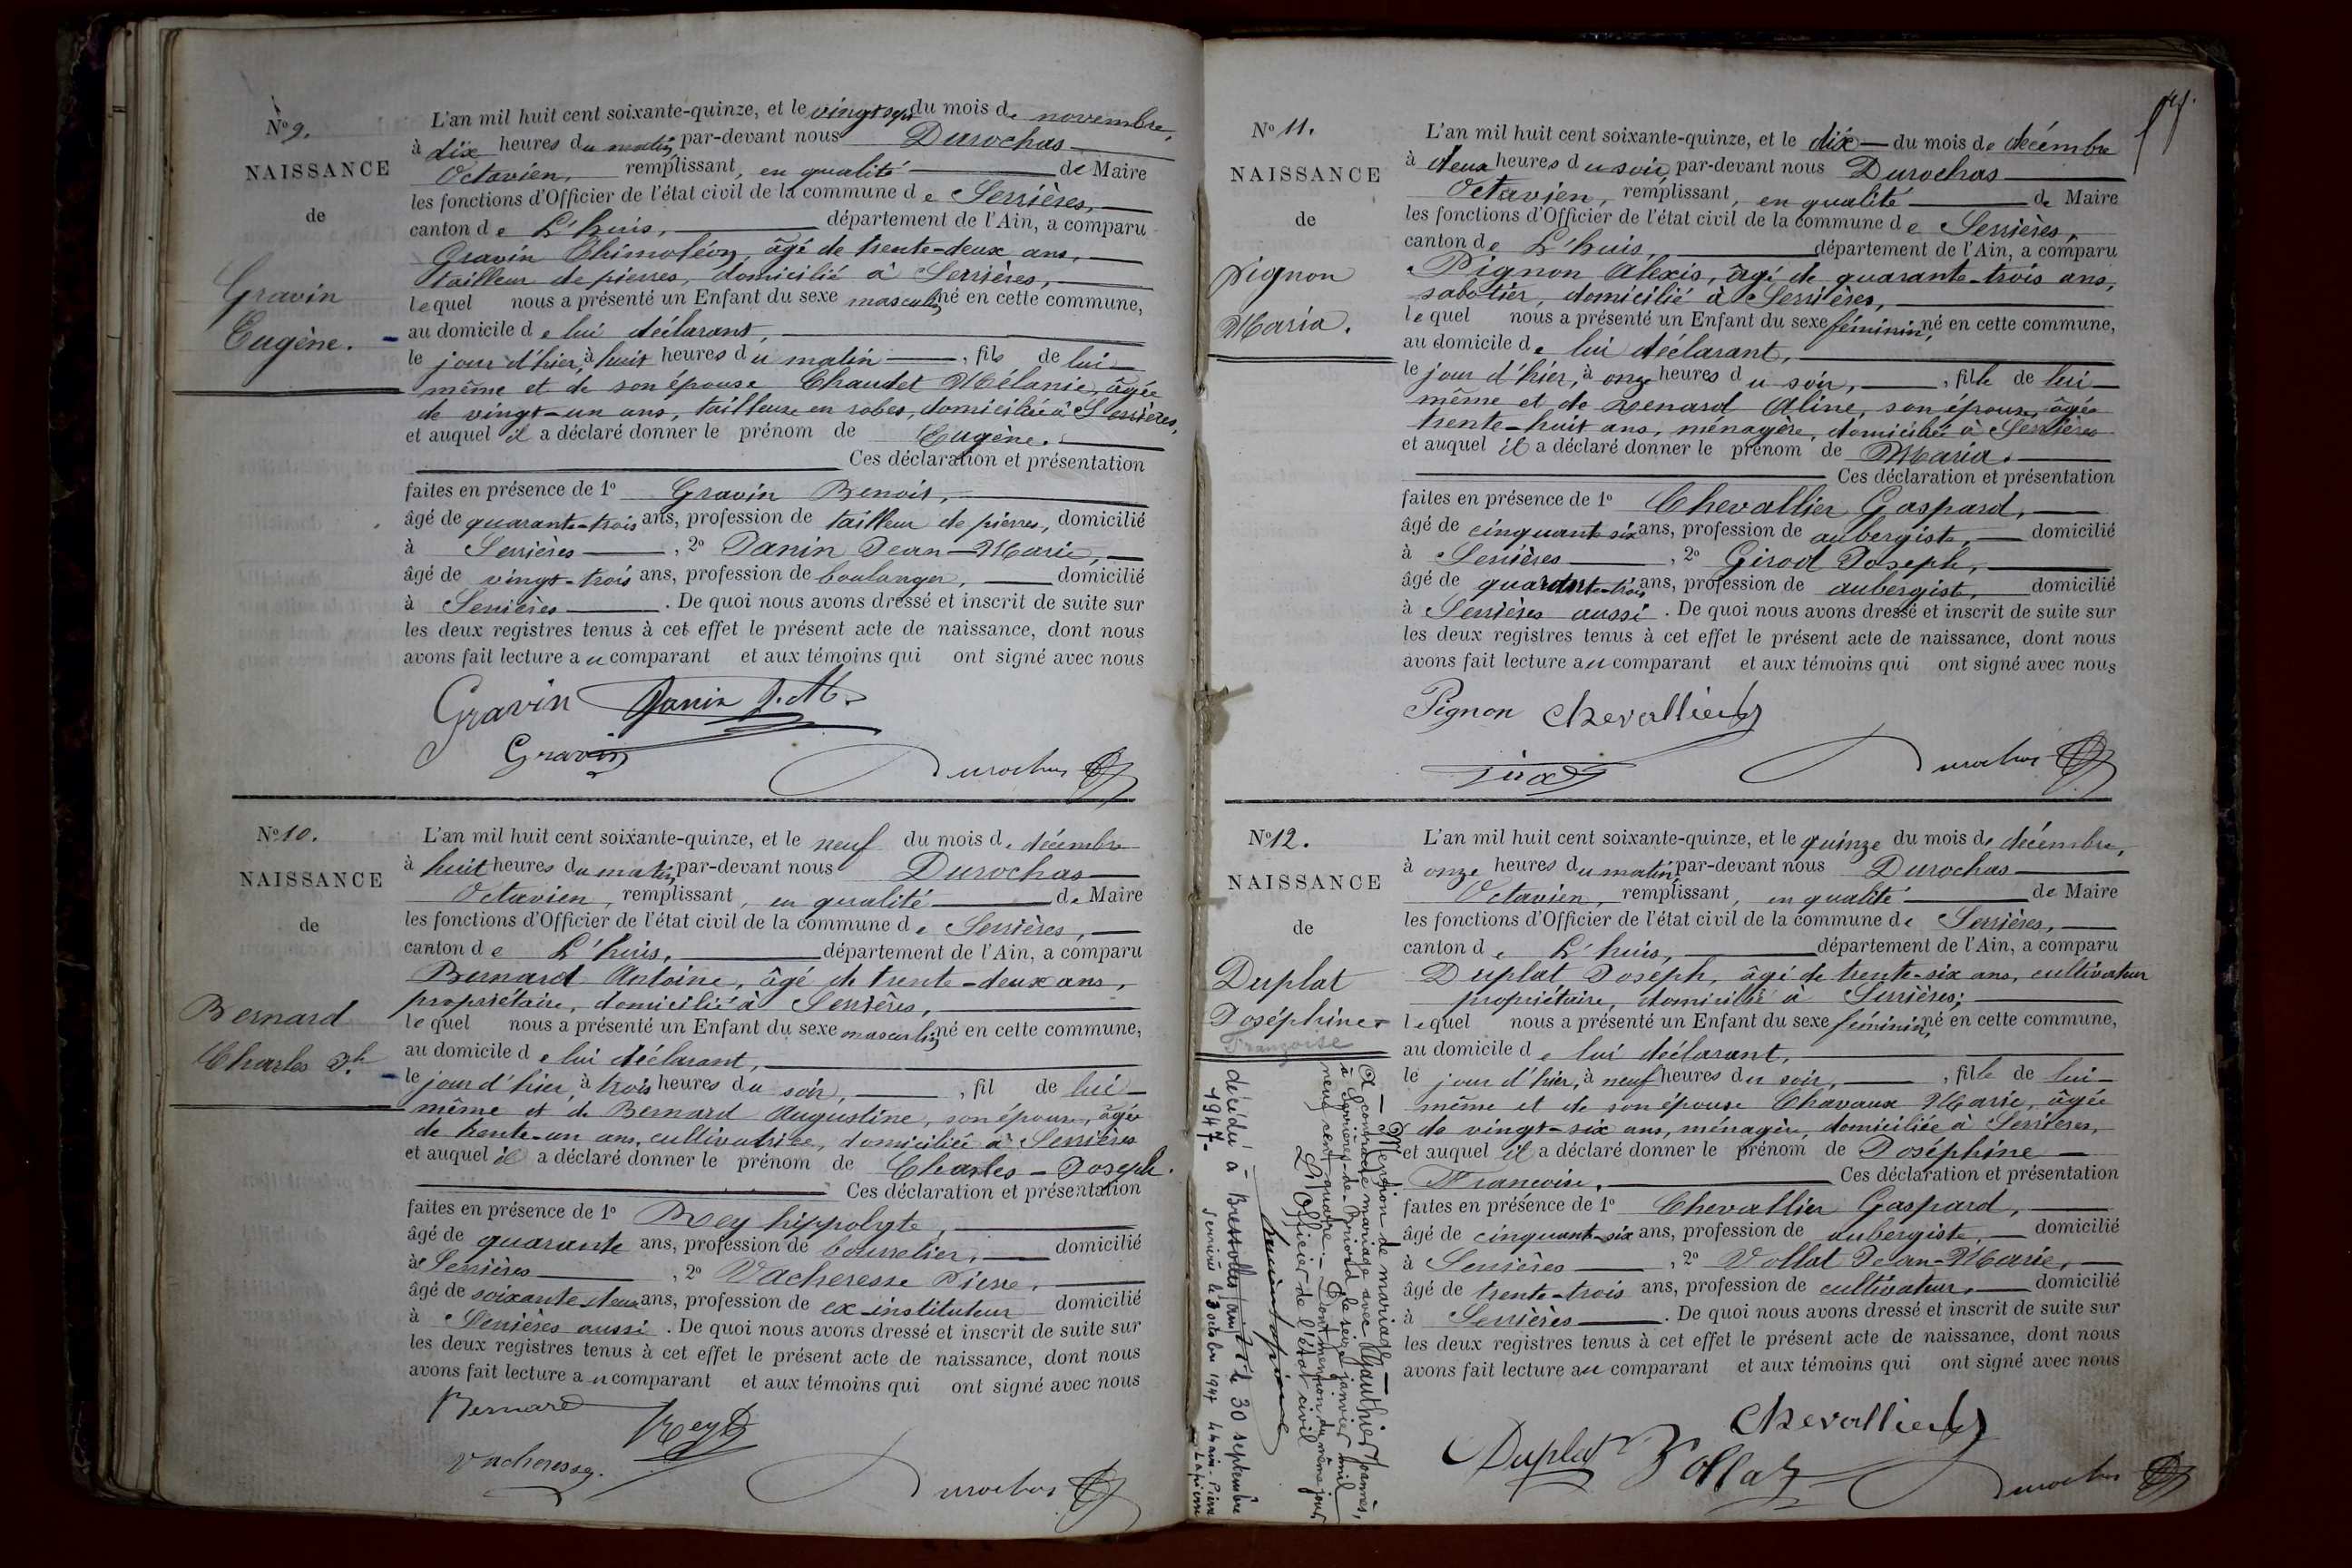 N° 9.
NAISSANCE
de
Gravin
Eugène.
L'an mil huit cent soixante-quinze, et le vingt sept du mois de novembre,
à dix heures du matin, par-devant nous Durochas
Octavien, remplissant, en qualité de Maire
les fonctions d'Officier de l'état civil de la commune de Serrières,
canton de L'huis, département de l'Ain, a comparu
Gravin Thimoléon, âgé de trente-deux ans,
tailleur de pierres, domicilié à Serrières,
lequel nous a présenté un Enfant du sexe masculin, né en cette commune,
au domicile de lui déclarant,
le jour d'hier, à huit heures du matin, fils de lui-
même et de son épouse Chaudet Mélanie, âgée
de vingt-un ans, tailleuse en robes, domiciliée à Serrières,
et auquel il a déclaré donner le prénom de Eugène.
Ces déclaration et présentation
faites en présence de 1° Gravin Benoit,
âgé de quarante-trois ans, profession de tailleur de pierres, domicilié
à Serrières, 2° Janin Jean-Marie,
âgé de vingt-trois ans, profession de boulanger, domicilié
à Serrières. De quoi nous avons dressé et inscrit de suite sur
les deux registres tenus à cet effet le présent acte de naissance, dont nous
avons fait lecture au comparant et aux témoins qui ont signé avec nous
Gravin Janin J. M.
Gravin
Durochas
N° 10.
NAISSANCE
de
Bernard
Charles Jh
L'an mil huit cent soixante-quinze, et le neuf du mois de décembre
à huit heures du matin, par-devant nous Durochas
Octavien, remplissant, en qualité de Maire
les fonctions d'Officier de l'état civil de la commune de Serrières,
canton de L'huis, département de l'Ain, a comparu
Bernard Antoine, âgé de trente-deux ans,
propriétaire, domicilié à Serrières,
lequel nous a présenté un Enfant du sexe masculin, né en cette commune,
au domicile de lui déclarant,
le jour d'hier, à trois heures du soir, fil de lui-
même et de Bernard Augustine, son épouse, âgée
de trente-un ans, cultivatrice, domiciliée à Serrières
et auquel il a déclaré donner le prénom de Charles-Joseph.
Ces déclaration et présentation
faites en présence de 1° Rey hippolyte,
âgé de quarante ans, profession de bourrelier, domicilié
à Serrières, 2° Vacheresse Pierre,
âgé de soixante-deux ans, profession de ex-instituteur domicilié
à Serrières aussi. De quoi nous avons dressé et inscrit de suite sur
les deux registres tenus à cet effet le présent acte de naissance, dont nous
avons fait lecture au comparant et aux témoins qui ont signé avec nous
Bernard Rey
Vacheresse.
Durochas
N° 11.
NAISSANCE
de
Pignon
Maria.
L'an mil huit cent soixante-quinze, et le dix du mois de décembre
à deux heures du soir, par-devant nous Durochas
Octavien, remplissant, en qualité de Maire
les fonctions d'Officier de l'état civil de la commune de Serrières,
canton de L'huis, département de l'Ain, a comparu
Pignon Alexis, âgé de quarante-trois ans,
sabotier, domicilié à Serrières,
lequel nous a présenté un Enfant du sexe féminin, né en cette commune,
au domicile de lui déclarant,
le jour d'hier, à onze heures du soir, fille de lui-
même et de Renard Aline, son épouse, âgée
trente-huit ans, ménagère, domiciliée à Serrières
et auquel il a déclaré donner le prénom de Maria.
Ces déclaration et présentation
faites en présence de 1° Chevallier Gaspard,
âgé de cinquante-six ans, profession de aubergiste, domicilié
à Serrières, 2° Girod Joseph,
âgé de quarante-trois ans, profession de aubergiste, domicilié
à Serrières aussi. De quoi nous avons dressé et inscrit de suite sur
les deux registres tenus à cet effet le présent acte de naissance, dont nous
avons fait lecture au comparant et aux témoins qui ont signé avec nous
Pignon Chevallier
Girod Durochas
N° 12.
NAISSANCE
de
Duplat
Joséphine
Françoise
L'an mil huit cent soixante-quinze, et le quinze du mois de décembre,
à onze heures du matin, par-devant nous Durochas
Octavien, remplissant, en qualité de Maire
les fonctions d'Officier de l'état civil de la commune de Serrières,
canton de L'huis, département de l'Ain, a comparu
Duplat Joseph, âgé de trente-six ans, cultivateur
propriétaire, domicilié à Serrières;
lequel nous a présenté un Enfant du sexe féminin, né en cette commune,
au domicile de lui déclarant,
le jour d'hier, à neuf heures du soir, fille de lui-
même et de son épouse Chavaux Marie, âgée
de vingt-six ans, ménagère, domiciliée à Serrières,
et auquel il a déclaré donner le prénom de Joséphine
Françoise. Ces déclaration et présentation
faites en présence de 1° Chevallier Gaspard,
âgé de cinquante-six ans, profession de aubergiste, domicilié
à Serrières, 2° Vollat Jean-Marie,
âgé de trente-trois ans, profession de cultivateur, domicilié
à Serrières. De quoi nous avons dressé et inscrit de suite sur
les deux registres tenus à cet effet le présent acte de naissance, dont nous
avons fait lecture au comparant et aux témoins qui ont signé avec nous
Chevallier
Duplat Vollat
Durochas
Mention de mariage
A contracté mariage avec Gauthier Joannès,
à Serrières-de-Briord le seize janvier mil
neuf cent quatre. Dont mention du même jour
L'Officier de l'état civil
décédé à Bressolles (Ain) le 30 septembre
1947
Serrières le 3 octobre 1947